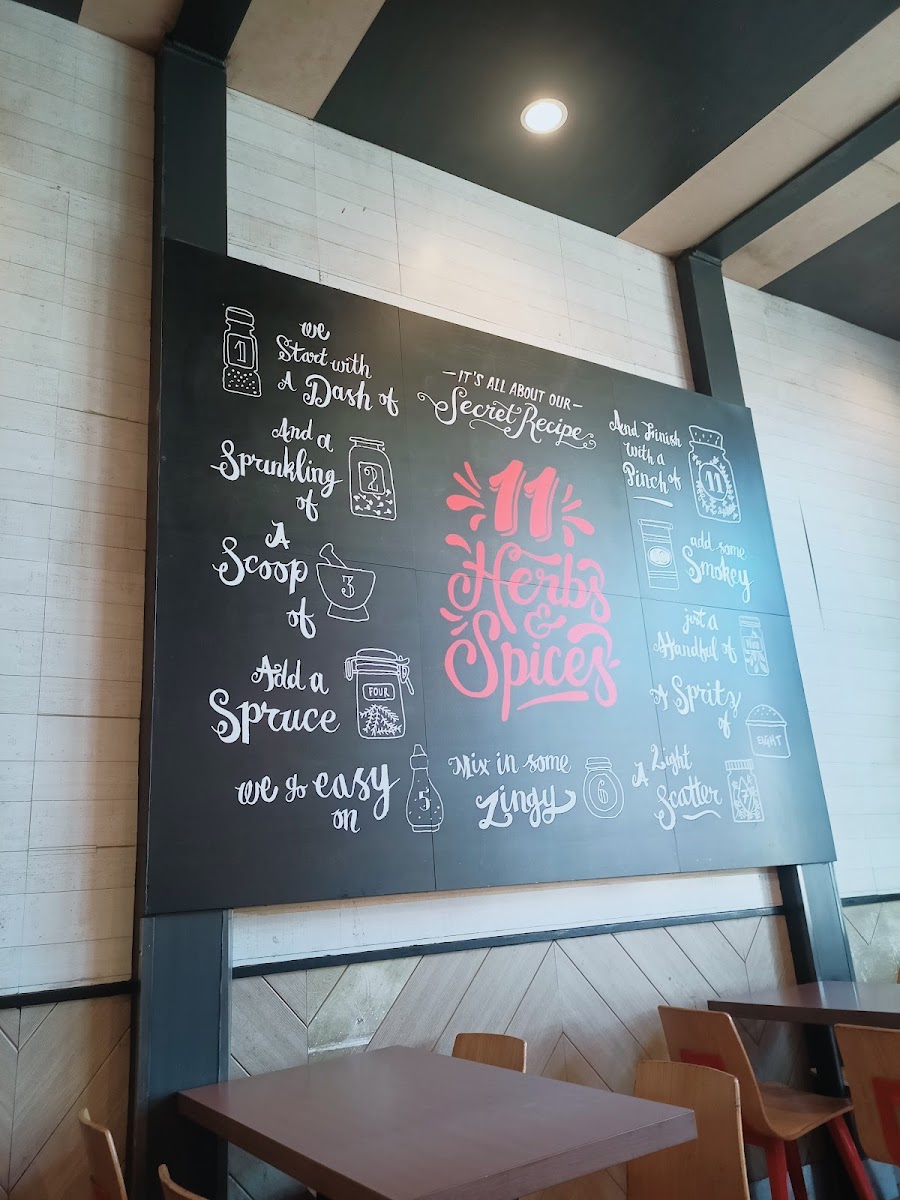 we
Start with
A Dash of
1
And a
Sprinkling
of
2
A
Scoop
of
3
Add a
Spruce
FOUR
we go easy
on
5
Mix in some
Zingy
6
A Light
Scatter
7
A Spritz
of
EIGHT
just a
Handful of
add some
Smokey
And Finish
with a
Pinch of
11
— IT'S ALL ABOUT OUR —
Secret Recipe
11
Herbs
&
Spices